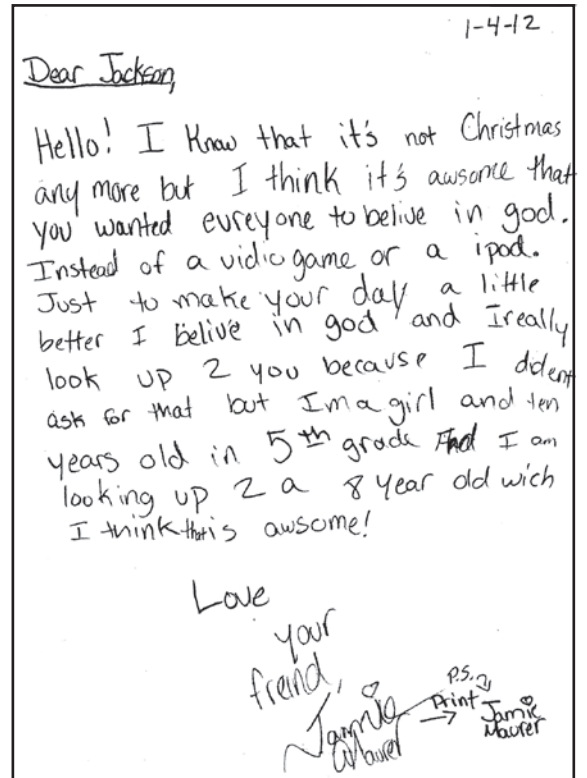 1-4-12
Dear Jackson,
Hello! I Know that it's not Christmas
any more but I think it's awsome that
you wanted eureyone to belive in god.
Instead of a vidio game or a ipod.
Just to make your day a little
better I belive in god and I really
look up 2 you because I dident
ask for that but Im a girl and ten
years old in 5th grade And I am
looking up 2 a 8 year old wich
I think that is awsome!
Love
your
freind,
Jamie
Maurer
P.S.
Print →
Jamie
Maurer